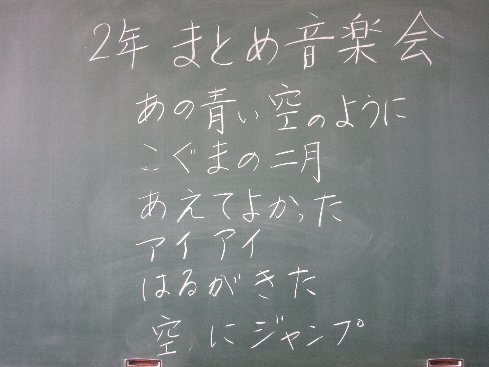 2年 まとめ音楽会
あの青い空のように
こぐまの二月
あえてよかった
アイアイ
はるがきた
空にジャンプ